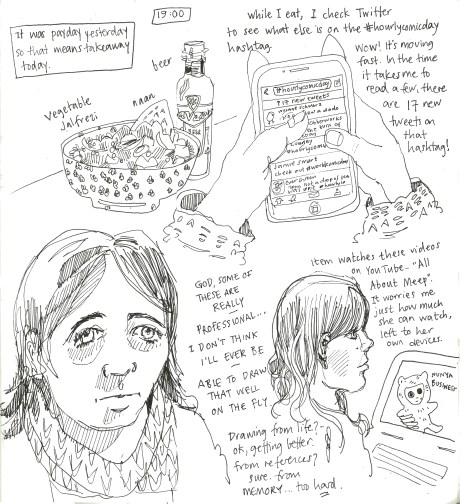 19:00
It was payday yesterday
so that means takeaway
today.
beer
vegetable
Jalfrezi
naan
while I eat, I check Twitter
to see what else is on the #hourlycomicday
hashtag.
#hourlycomicday
17 new tweets
jamie smart
check out #
Wow! It's moving
fast. In the time
it takes me to
read a few, there
are 17 new
tweets on
that
hashtag!
GOD, SOME OF
THESE ARE
REALLY
PROFESSIONAL...
I DON'T THINK
I'LL EVER BE
ABLE TO DRAW
THAT WELL
ON THE FLY.
Drawing from life? -
ok, getting better.
from references?
sure. from
MEMORY... too hard.
item watches these videos
on YouTube - "All
About Meep".
It worries me
just how much
she can watch,
left to her
own devices.
NUNYA
BUSINESS